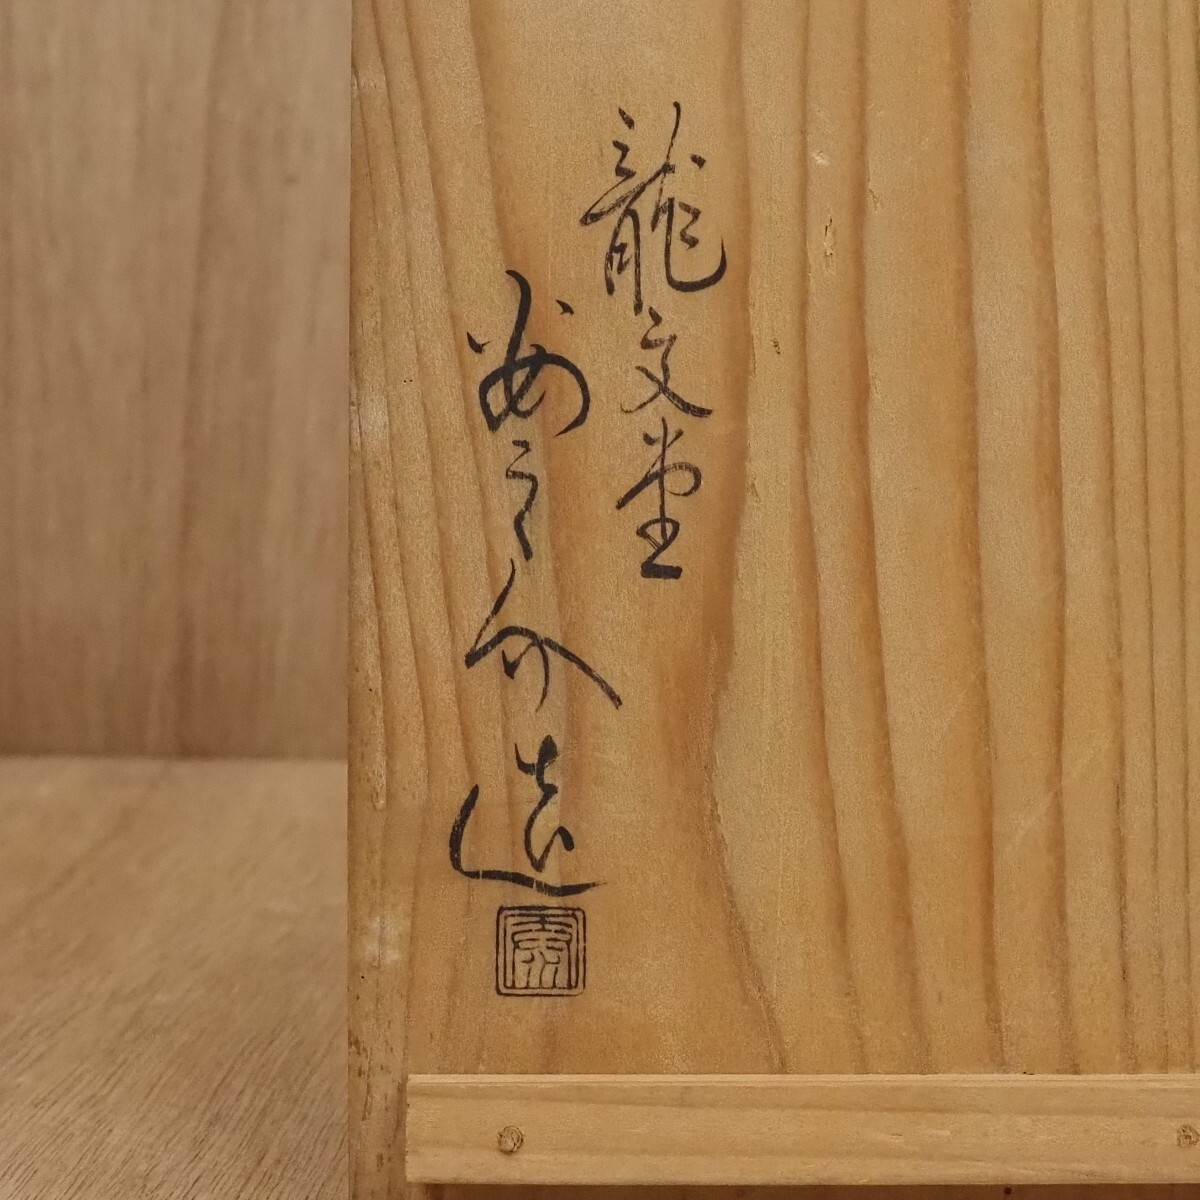 龍文堂
安之介造